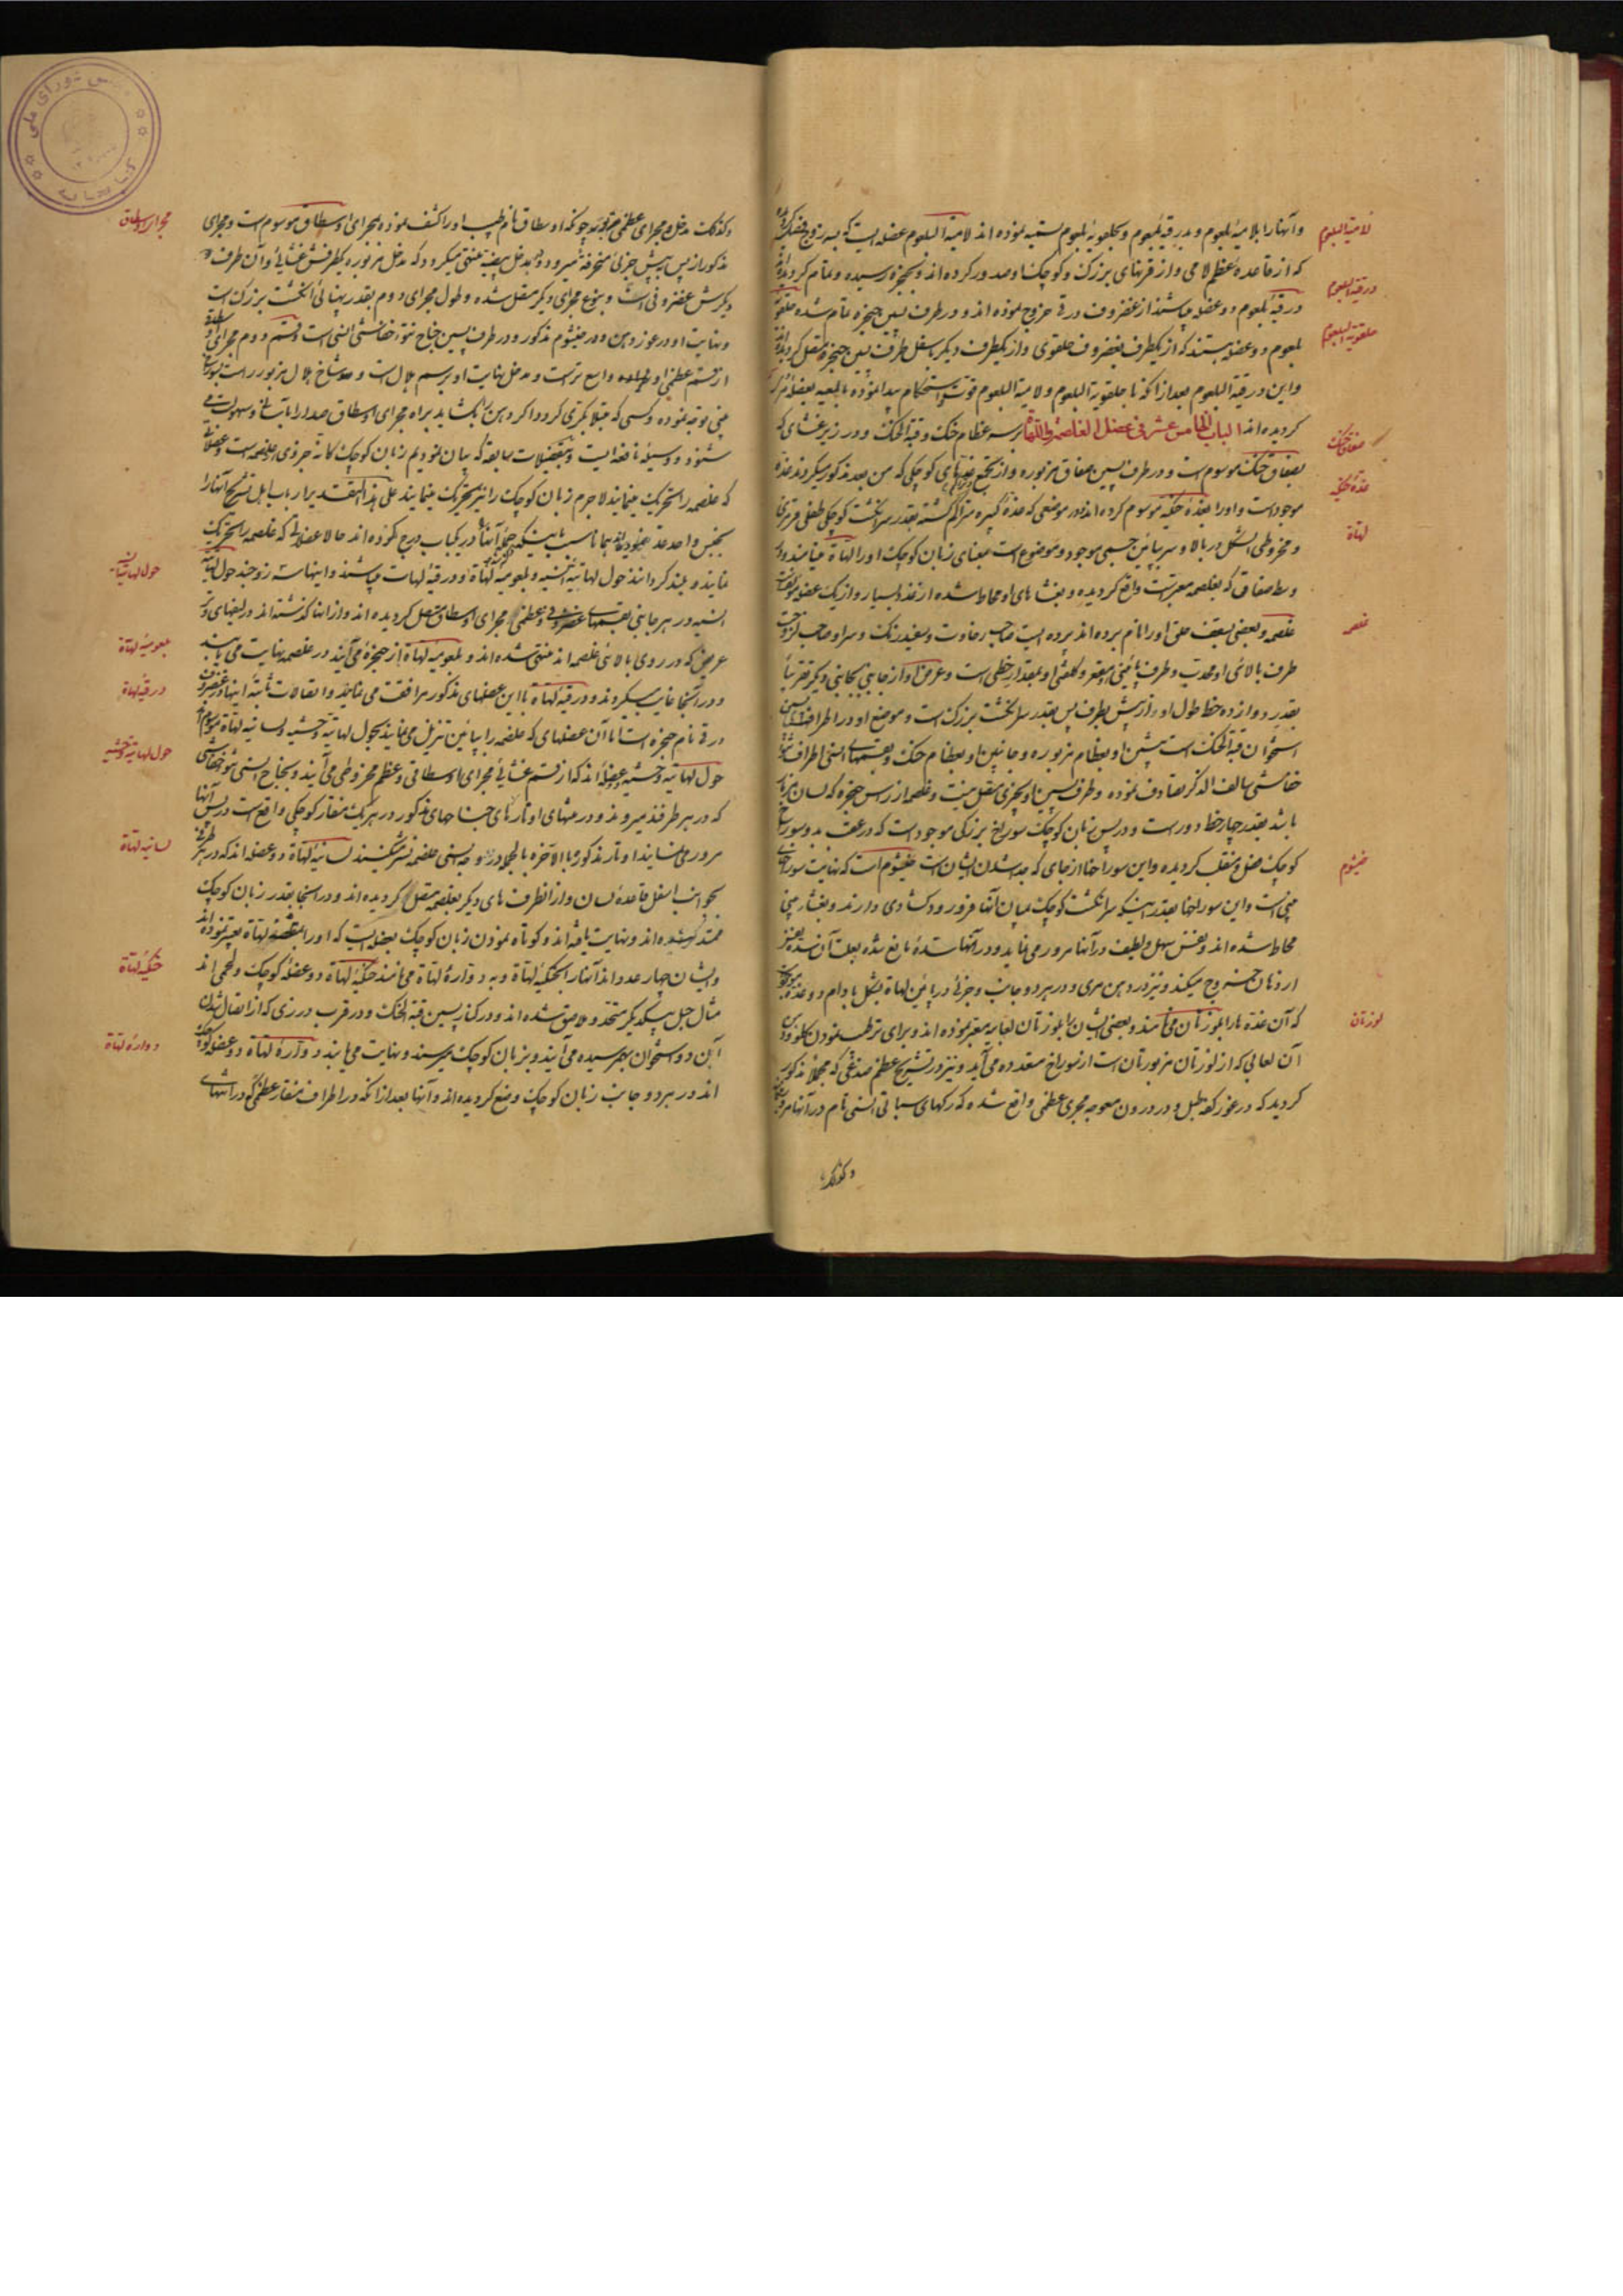 و آنها را بلامیهٔ بلعوم و بدرقیهٔ بلعوم و بحلقویهٔ بلعوم تسمیه نموده اند لامیة البلعوم عضله ایست که
لامیة البلعوم
که از قاعدهٔ عظم لامی و از قرنهای بزرک و کوچک او صدور کرده اند و بحنجره رسیده و تمام کردیده اند
درقیهٔ بلعوم دو عضله میباشند از غضروف درقی خروج نموده اند و در طرف پسین حنجره تمام شده حلقویهٔ
درقیة البلعوم
بلعوم دو عضله هستند که از یکطرف بغضروف حلقوی و از یکطرف دیکر باسفل طرف پسین حنجره متصل کردیده اند
حلقویة البلعوم
و این درقیة البلعوم بعد از آنکه با حلقویة البلعوم و لامیة البلعوم قوت و استحکام پیدا نموده
کردیده اند الباب الخامس عشر فی عضل الغلصمة و اللهاة بر سر عظام حنک و قبة الحنک و در زیر غشای که
بصفاق حنک موسوم است و در طرف پسین صفاق مزبوره و از تجمع غده های کوچکی که من بعد مذکور میکردند غدهٔ
صفاق حنک
موجود است و او را بغدهٔ حنکیه موسوم کرده اند و در موضعی که غدهٔ کبیره متراکم کشته بقدر سر انکشت کوچک طفلی
غدهٔ حنکیه
و مخروطی الشکل در بالا و سر بپائین جسمی موجود و موضوع است بمعنای زبان کوچک او را لهاة مینامند و در
لهاة
وسط صفاق که بغلصمه معبر است واقع کردیده و بغشاهای او محاط شده از غدد بسیار و از یک عضو
غلصمه و بعضی بسقف حلق او را نام برده اند پرده ایست صاحب رخاوت و سفید رنک
غلصمه
طرف بالائی او محدب و طرف پائینی او مقعر و کلفتی او بمقدار خطی است و عرض او از جانبی بجانبی دیکر تقریباً
بقدر دوازده خط طول او از پیش بطرف پس بقدر سر انکشت بزرک است و موضع او در اطراف پسین
استخوان قبة الحنک است پیشین او بعظام مزبوره و جانبین او بعظام حنک و بقسمهای انسی اطراف
خفاشی سالف الذکر تصادف نموده و طرف پسین او بچیزی متصل نیست و غلصمه از راس حنجره که لسان مزمار
باشد بقدر چهار خط دور است و در پس زبان کوچک سوراخ بزرکی موجود است که در عقب بدو سوراخ
کوچک فصل و منقلب کردیده و این سوراخها از جای که مبدا شدن ایشان است خیشوم است که نهایت سوراخهای
خیشوم
بینی است و این سوراخها بقدر اینکه سر انکشت کوچک بمیان آنها فرو رود کشادی دارند و بغشاء بینی
محاط شده اند و نفس سهل و لطیف در آنها مرور می نماید و در آنها سدهٔ مانع شده بعلت آن سده نفس
از دهان خروج میکند و نیز در دهن مری و در هر دو جانب و جزئی در پائین لهاة بشکل بادام دو غده موجود
که آن غده ها را بلوزتان می نامند و بعضی ایشان را بلوزتان لعابیه معتبر نموده اند و برای تر نمودن کلو
لوزتان
آن لعابی که از لوزتان مزبورتان است از سوراخ متعدده می آید و نیز در تشریح عظم صدغی که مجملاً مذکور
کردید که در غور کهف طبل و در درون معوجه مجری عظمی واقع شده که رکهای سباتی انسی تام در آنها
و کذلک
و کذلک مدخل و مجرای عظمی مزبوره چونکه اوسطاق نام طبیب او را کشف نموده بمجرای اوسطاق موسوم است و مجرای
مجرای اوسطاق
مذکور از پس بپیش جزئی منحرفة میرود و بمدخل بیضیه منتهی میکردد که مدخل مزبوره یکطرفش غشائی و آن طرف
دیکرش غضروفی است و بنوع مجرای دیکر متصل شده و طول مجرای دوم بقدر پهنائی انکشت بزرک است
و نهایت او در غور دهن و در خیشوم مذکور و در طرف پسین جناح نتوء خفاشی انسی است و قسم دوم مجرای اوسطاق
از قسم عظمی او واسع تر است و مدخل نهایت او برسم هلال است و دو شاخ هلال مزبور راست
بینی توجه نموده و کسی که مبتلا بکری کردد اکر دهن را بکشاید براه مجرای اوسطاق صدا را بآسانی و سهولت می
شنود و وسیلهٔ نافعه ایست و بتفصیلات سابقه که بیان نمودیم زبان کوچک کانه جزوی از غلصمه است و عضلهای
که غلصمه را تحریک مینمایند لاجرم زبان کوچک را نیز تحریک مینمایند علی هذا التقدیر ارباب اهل تشریح آنها را
بجنس واحد عد نموده اند بنا بر اینکه جملهٔ آنها در یکباب درج کرده اند حالا عضلهای که غلصمه را تحریک
نمایند و بلند کردانند حول لهاتیهٔ انسیه و بلعومیهٔ لهاة و درقیهٔ لهاة میباشند و اینها سه زوجند حول لهاتیه
حول لهاتیان
انسیه در هر جانبی بقسمهای غضروفی و عظمی مجرای اوسطاق متصل کردیده اند و از اینها کذشته اند در لیفهای
عریض که در روی بالائی غلصمه اند منتهی شده اند و بلعومیه لهاة از حنجره می آیند در غلصمه نهایت می یابند
بلعومیهٔ لهاة
و در آنجا غایب میکردند و درقیه لهاة با این عضلهای مذکور مرافقت می نمایند و اتصالات ثابتهٔ اینها در غضروف
درقیهٔ لهاة
درقی نام حنجره است اما آن عضلهای که غلصمه را بپائین تنزیل می نمایند بحول لهاتیه وحشیه و لسانیه لهاة موسوم اند
حول لهاتیه وحشیه دو عضله اند که از قسم غشائی مجرای اوسطاقی و عظم مخروطی می آیند و بجناح انسی نتوء خفاشی
حول لهاتیه وحشیه
که در هر طرفند میروند و در منتهای اوتارهای جناحهای مذکور در هر یک منقار کوچکی واقع است در پس آنها
مرور می نمایند اوتار مذکوره بالآخره بالجمله در وجه پسینی غلصمه نشر میکنند لسانیهٔ لهاة دو عضله اند که در هر طرفی
لسانیه لهاة
بجوانب اسفل قاعدهٔ لسان و از انطرف های دیکر بغلصمه متصل کردیده اند و در اینجا بقدر زبان کوچک
ممتد کردیده اند و نهایت یافته اند و کوتاه نمودن زبان کوچک بعضله ایست که او را بعضلهٔ لهاة تعبیر نموده اند
و ایشان چهار عدد اند آنها را بحنکیهٔ لهاة و به دوارهٔ لهاة می نامند حنکیهٔ لهاة دو عضلهٔ کوچک و لحمی اند
حنکیهٔ لهاة
مثال حبل بیکدیکر متحد و ملاصق شده اند و در کنار پسین قبة الحنک و در قرب درزی که از اتصال شدن
آن دو استخوان بهم رسیده می آیند و بزبان کوچک میرسند و نهایت می یابند دوارهٔ لهاة دو عضله کوچک
دوارهٔ لهاة
اند در هر دو جانب زبان کوچک وضع کردیده اند و آنها بعد از آنکه در اطراف منقار عظمی که در انتهای